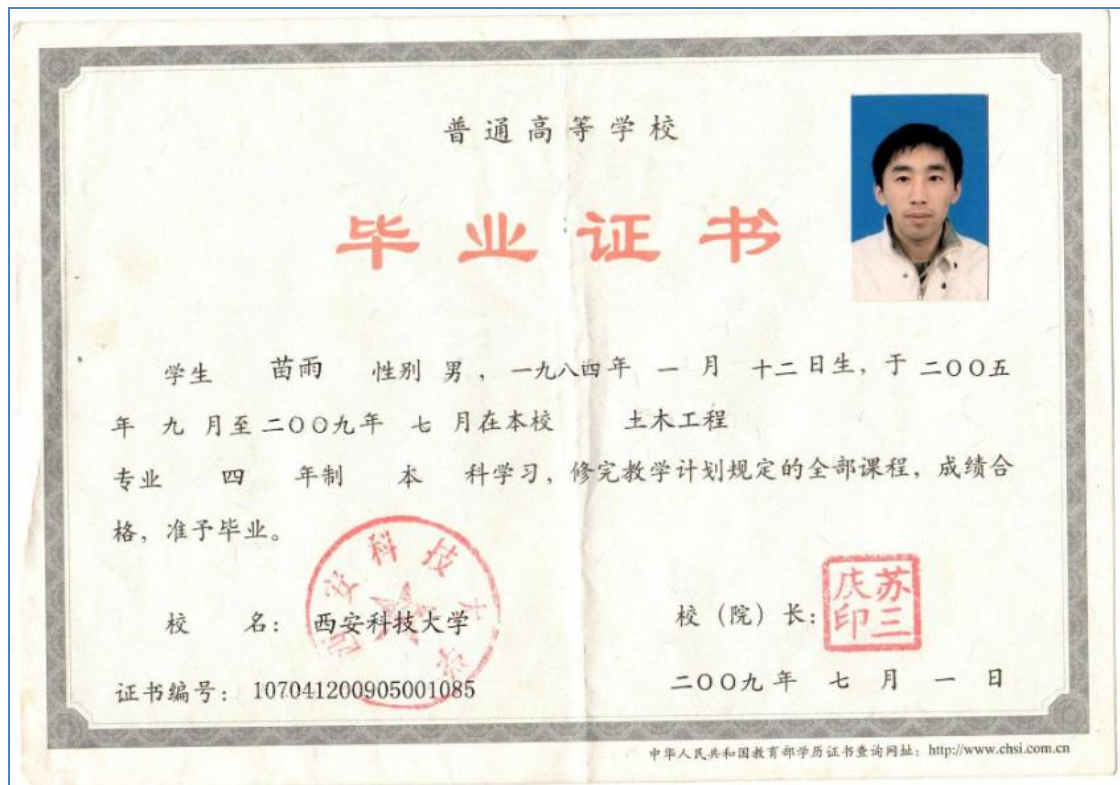 普通高等学校
毕业证书
学生 苗雨 性别 男，一九八四年 一 月 十二日生，于 二〇〇五
年 九 月至二〇〇九年 七 月在本校 土木工程
专业 四 年制 本 科学习，修完教学计划规定的全部课程，成绩合
格，准予毕业。
西安科技大学
校 名：西安科技大学
校（院）长：
苏三庆印
证书编号：107041200905001085
二〇〇九年 七 月 一 日
中华人民共和国教育部学历证书查询网址：http://www.chsi.com.cn